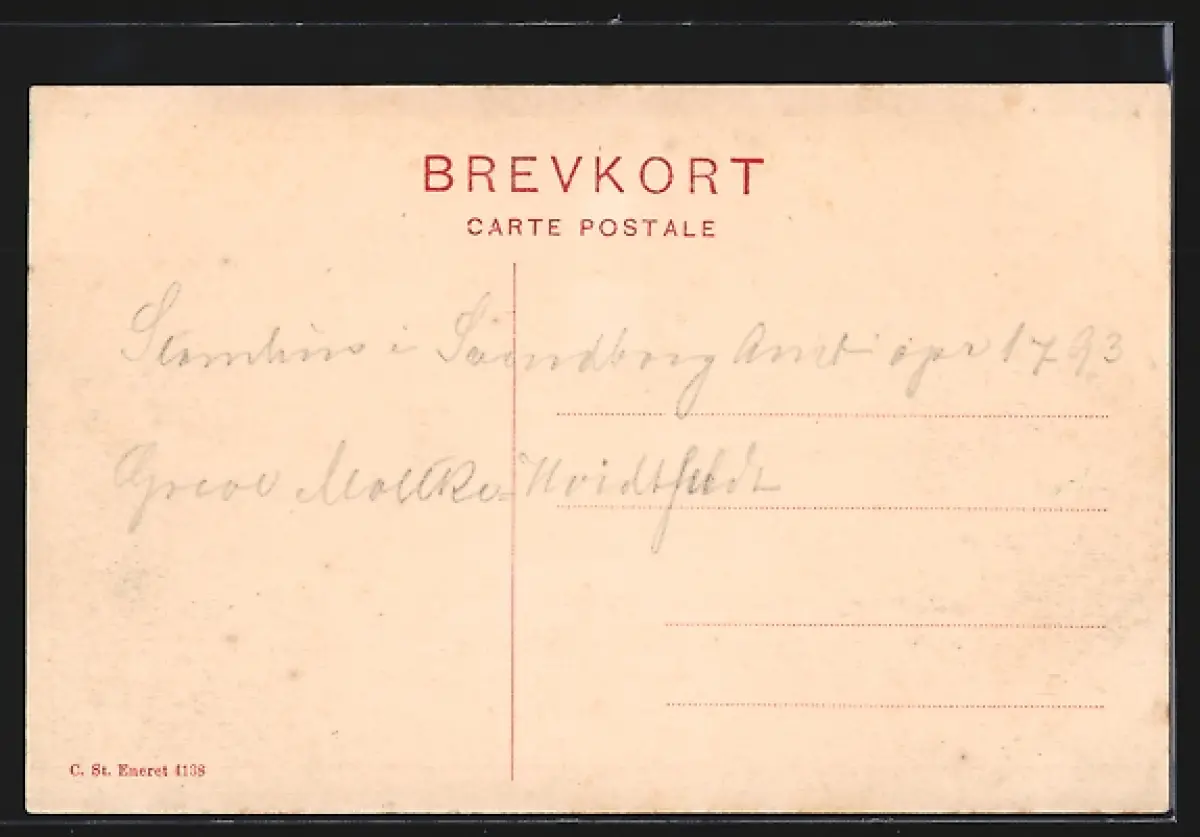 BREVKORT
CARTE POSTALE
Stamhus i Svendborg Amt opr 1793
Greve Moltke-Hvidtfeldt
C. St. Eneret 4138